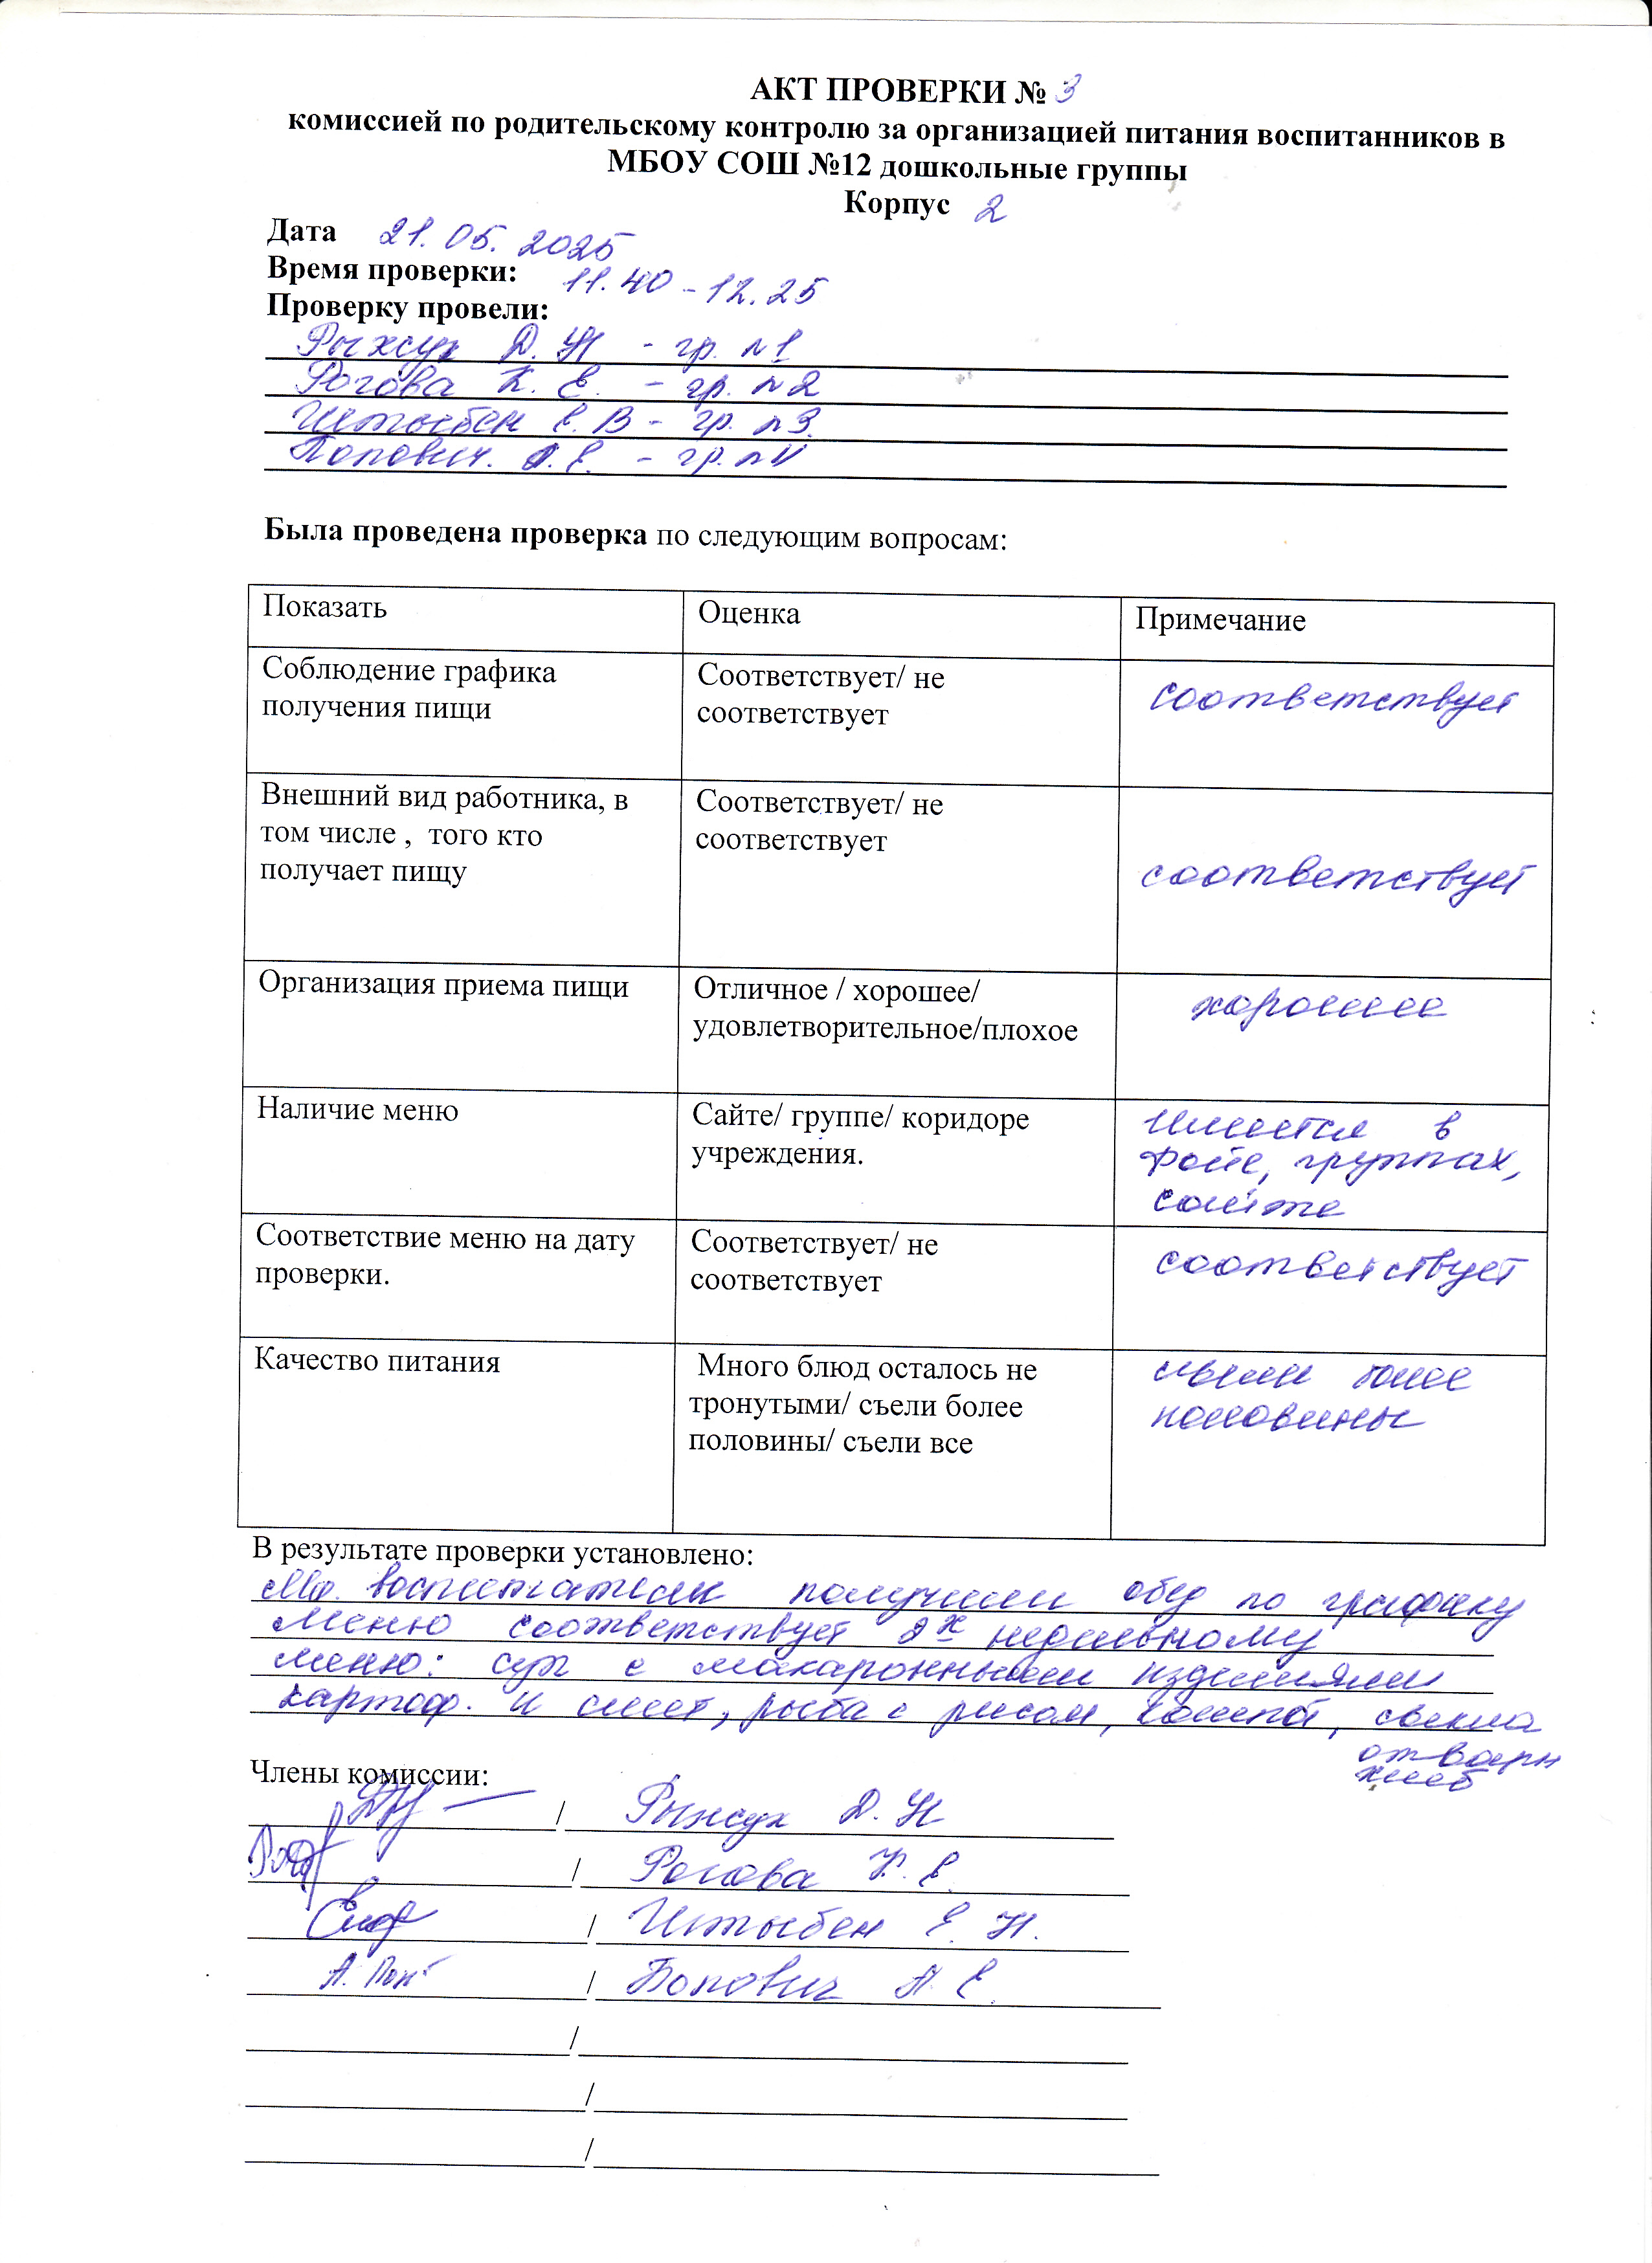 АКТ ПРОВЕРКИ № 3
комиссией по родительскому контролю за организацией питания воспитанников в
МБОУ СОШ №12 дошкольные группы
Корпус 2
Дата 21.05.2025
Время проверки: 11.40-12.25
Проверку провели:
Д. Н - гр. №1
Рогова К. Е. - гр. №2
Иштыбен Е. В - гр. №3.
Попович. А. Е. - гр. №4
Была проведена проверка по следующим вопросам:
Показать Оценка Примечание
Соблюдение графика Соответствует/ не соответствует
получения пищи соответствует
Внешний вид работника, в Соответствует/ не
том числе , того кто соответствует
получает пищу соответствует
Организация приема пищи Отличное / хорошее/ хорошее
удовлетворительное/плохое
Наличие меню Сайте/ группе/ коридоре имеется в
учреждения. фойе, группах,
сайте
Соответствие меню на дату Соответствует/ не соответствует
проверки. соответствует
Качество питания Много блюд осталось не съели более
тронутыми/ съели более половины
половины/ съели все
В результате проверки установлено:
Мл. воспитатели получили обед по графику
Меню соответствует 2х недельному
меню: суп с макаронными изделиями
картоф. и омлет, рыба с рисом, компот, свекла
отварн
хлеб
Члены комиссии:
/ Д. Н
/ Рогова К. Е.
/ Иштыбен Е. Н.
А. Поп / Попович А. Е.
/
/
/